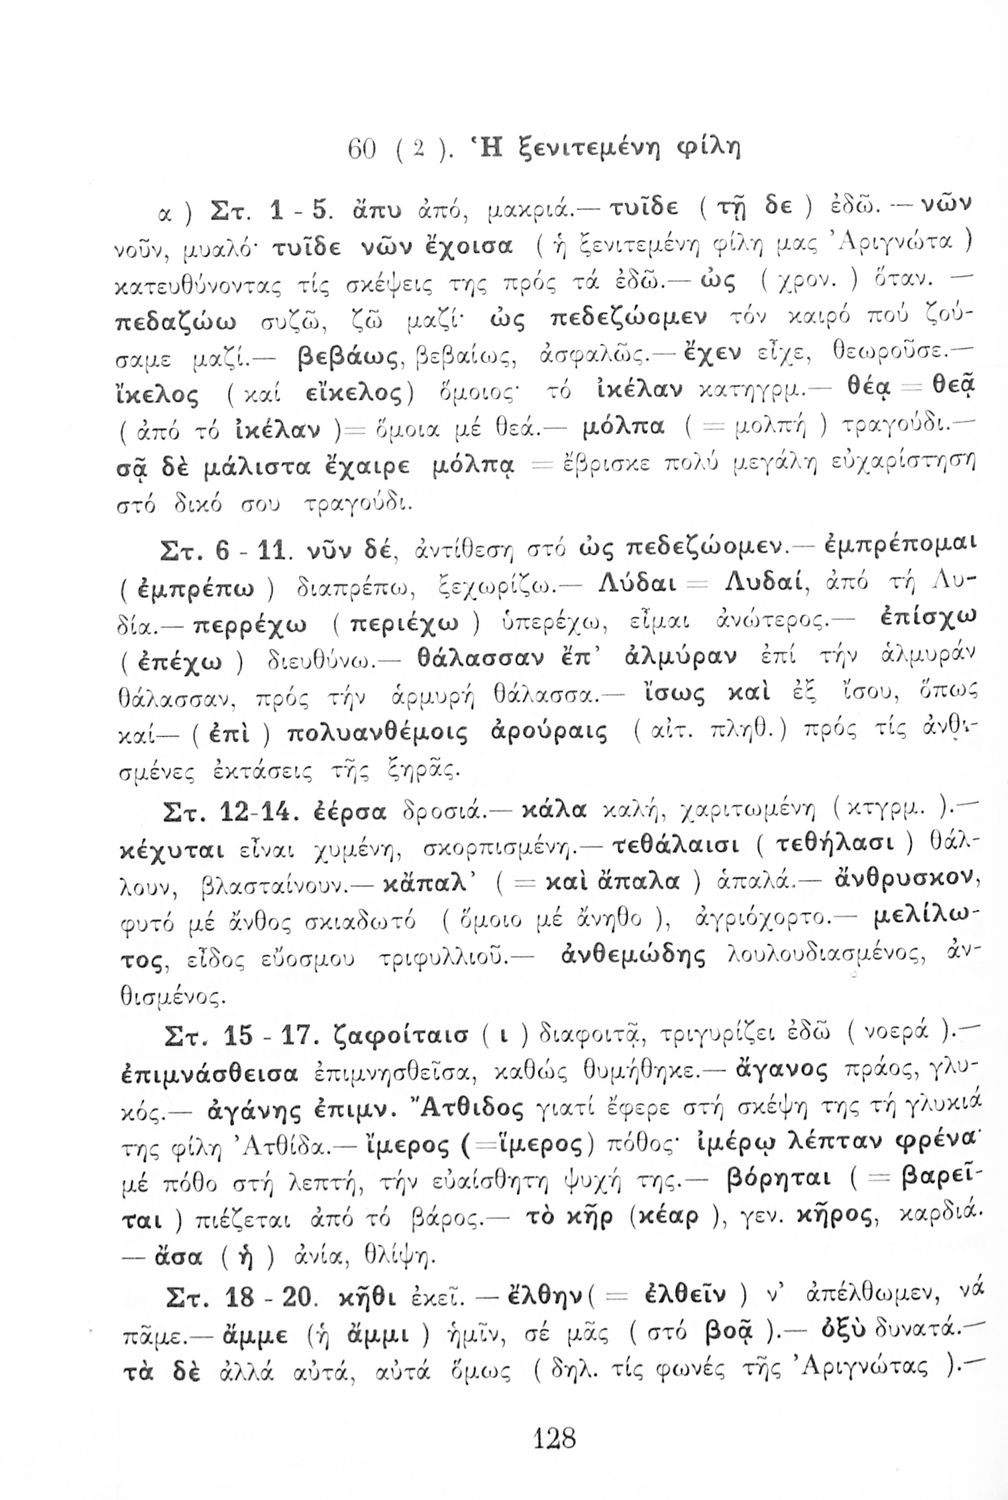 60 ( 2 ). Ἡ ξενιτεμένη φίλη
α ) Στ. 1 - 5. ἄπυ ἀπό, μακριά.— τυῖδε ( τῇ δε ) ἐδῶ. — νῶν
νοῦν, μυαλό· τυῖδε νῶν ἔχοισα ( ἡ ξενιτεμένη φίλη μας Ἀριγνώτα )
κατευθύνοντας τίς σκέψεις της πρός τά ἐδῶ.— ὠς ( χρον. ) ὅταν. —
πεδαζώω συζῶ, ζῶ μαζί· ὠς πεδεζώομεν τόν καιρό πού ζού-
σαμε μαζί.— βεβάως, βεβαίως, ἀσφαλῶς.— ἔχεν εἶχε, θεωροῦσε.—
ἴκελος ( καί εἴκελος) ὅμοιος· τό ἰκέλαν κατηγρμ.— θέᾳ = θεᾷ
( ἀπό τό ἰκέλαν )= ὅμοια μέ θεά.— μόλπα ( = μολπή ) τραγούδι.—
σᾷ δὲ μάλιστα ἔχαιρε μόλπᾳ = ἔβρισκε πολύ μεγάλη εὐχαρίστηση
στό δικό σου τραγούδι.
Στ. 6 - 11. νῦν δέ, ἀντίθεση στό ὠς πεδεζώομεν.— ἐμπρέπομαι
( ἐμπρέπω ) διαπρέπω, ξεχωρίζω.— Λύδαι = Λυδαί, ἀπό τή Λυ-
δία.— περρέχω ( περιέχω ) ὑπερέχω, εἶμαι ἀνώτερος.— ἐπίσχω
( ἐπέχω ) διευθύνω.— θάλασσαν ἔπ’ ἀλμύραν ἐπί τήν ἁλμυράν
θάλασσαν, πρός τήν ἁρμυρή θάλασσα.— ἴσως καὶ ἐξ ἴσου, ὅπως
καί— ( ἐπὶ ) πολυανθέμοις ἀρούραις ( αἰτ. πληθ.) πρός τίς ἀνθι-
σμένες ἐκτάσεις τῆς ξηρᾶς.
Στ. 12-14. ἐέρσα δροσιά.— κάλα καλή, χαριτωμένη ( κτγρμ. ).—
κέχυται εἶναι χυμένη, σκορπισμένη.— τεθάλαισι ( τεθήλασι ) θάλ-
λουν, βλασταίνουν.— κἄπαλ’ ( = καὶ ἄπαλα ) ἁπαλά.— ἄνθρυσκον,
φυτό μέ ἄνθος σκιαδωτό ( ὅμοιο μέ ἄνηθο ), ἀγριόχορτο.— μελίλω-
τος, εἶδος εὔοσμου τριφυλλιοῦ.— ἀνθεμώδης λουλουδιασμένος, ἀν-
θισμένος.
Στ. 15 - 17. ζαφοίταισ ( ι ) διαφοιτᾷ, τριγυρίζει ἐδῶ ( νοερά ).—
ἐπιμνάσθεισα ἐπιμνησθεῖσα, καθώς θυμήθηκε.— ἄγανος πράος, γλυ-
κός.— ἀγάνης ἐπιμν. Ἄτθιδος γιατί ἔφερε στή σκέψη της τή γλυκιά
της φίλη Ἀτθίδα.— ἴμερος (=ἵμερος) πόθος· ἰμέρῳ λέπταν φρένα·
μέ πόθο στή λεπτή, τήν εὐαίσθητη ψυχή της.— βόρηται ( = βαρεῖ-
ται ) πιέζεται ἀπό τό βάρος.— τὸ κῆρ (κέαρ ), γεν. κῆρος, καρδιά.
— ἄσα ( ἡ ) ἀνία, θλίψη.
Στ. 18 - 20. κῆθι ἐκεῖ. — ἔλθην( = ἐλθεῖν ) ν’ ἀπέλθωμεν, νά
πᾶμε.— ἄμμε (ἡ ἄμμι ) ἡμῖν, σέ μᾶς ( στό βοᾷ ).— ὀξὺ δυνατά.—
τὰ δὲ ἀλλά αὐτά, αὐτά ὅμως ( δηλ. τίς φωνές τῆς Ἀριγνώτας ).—
128